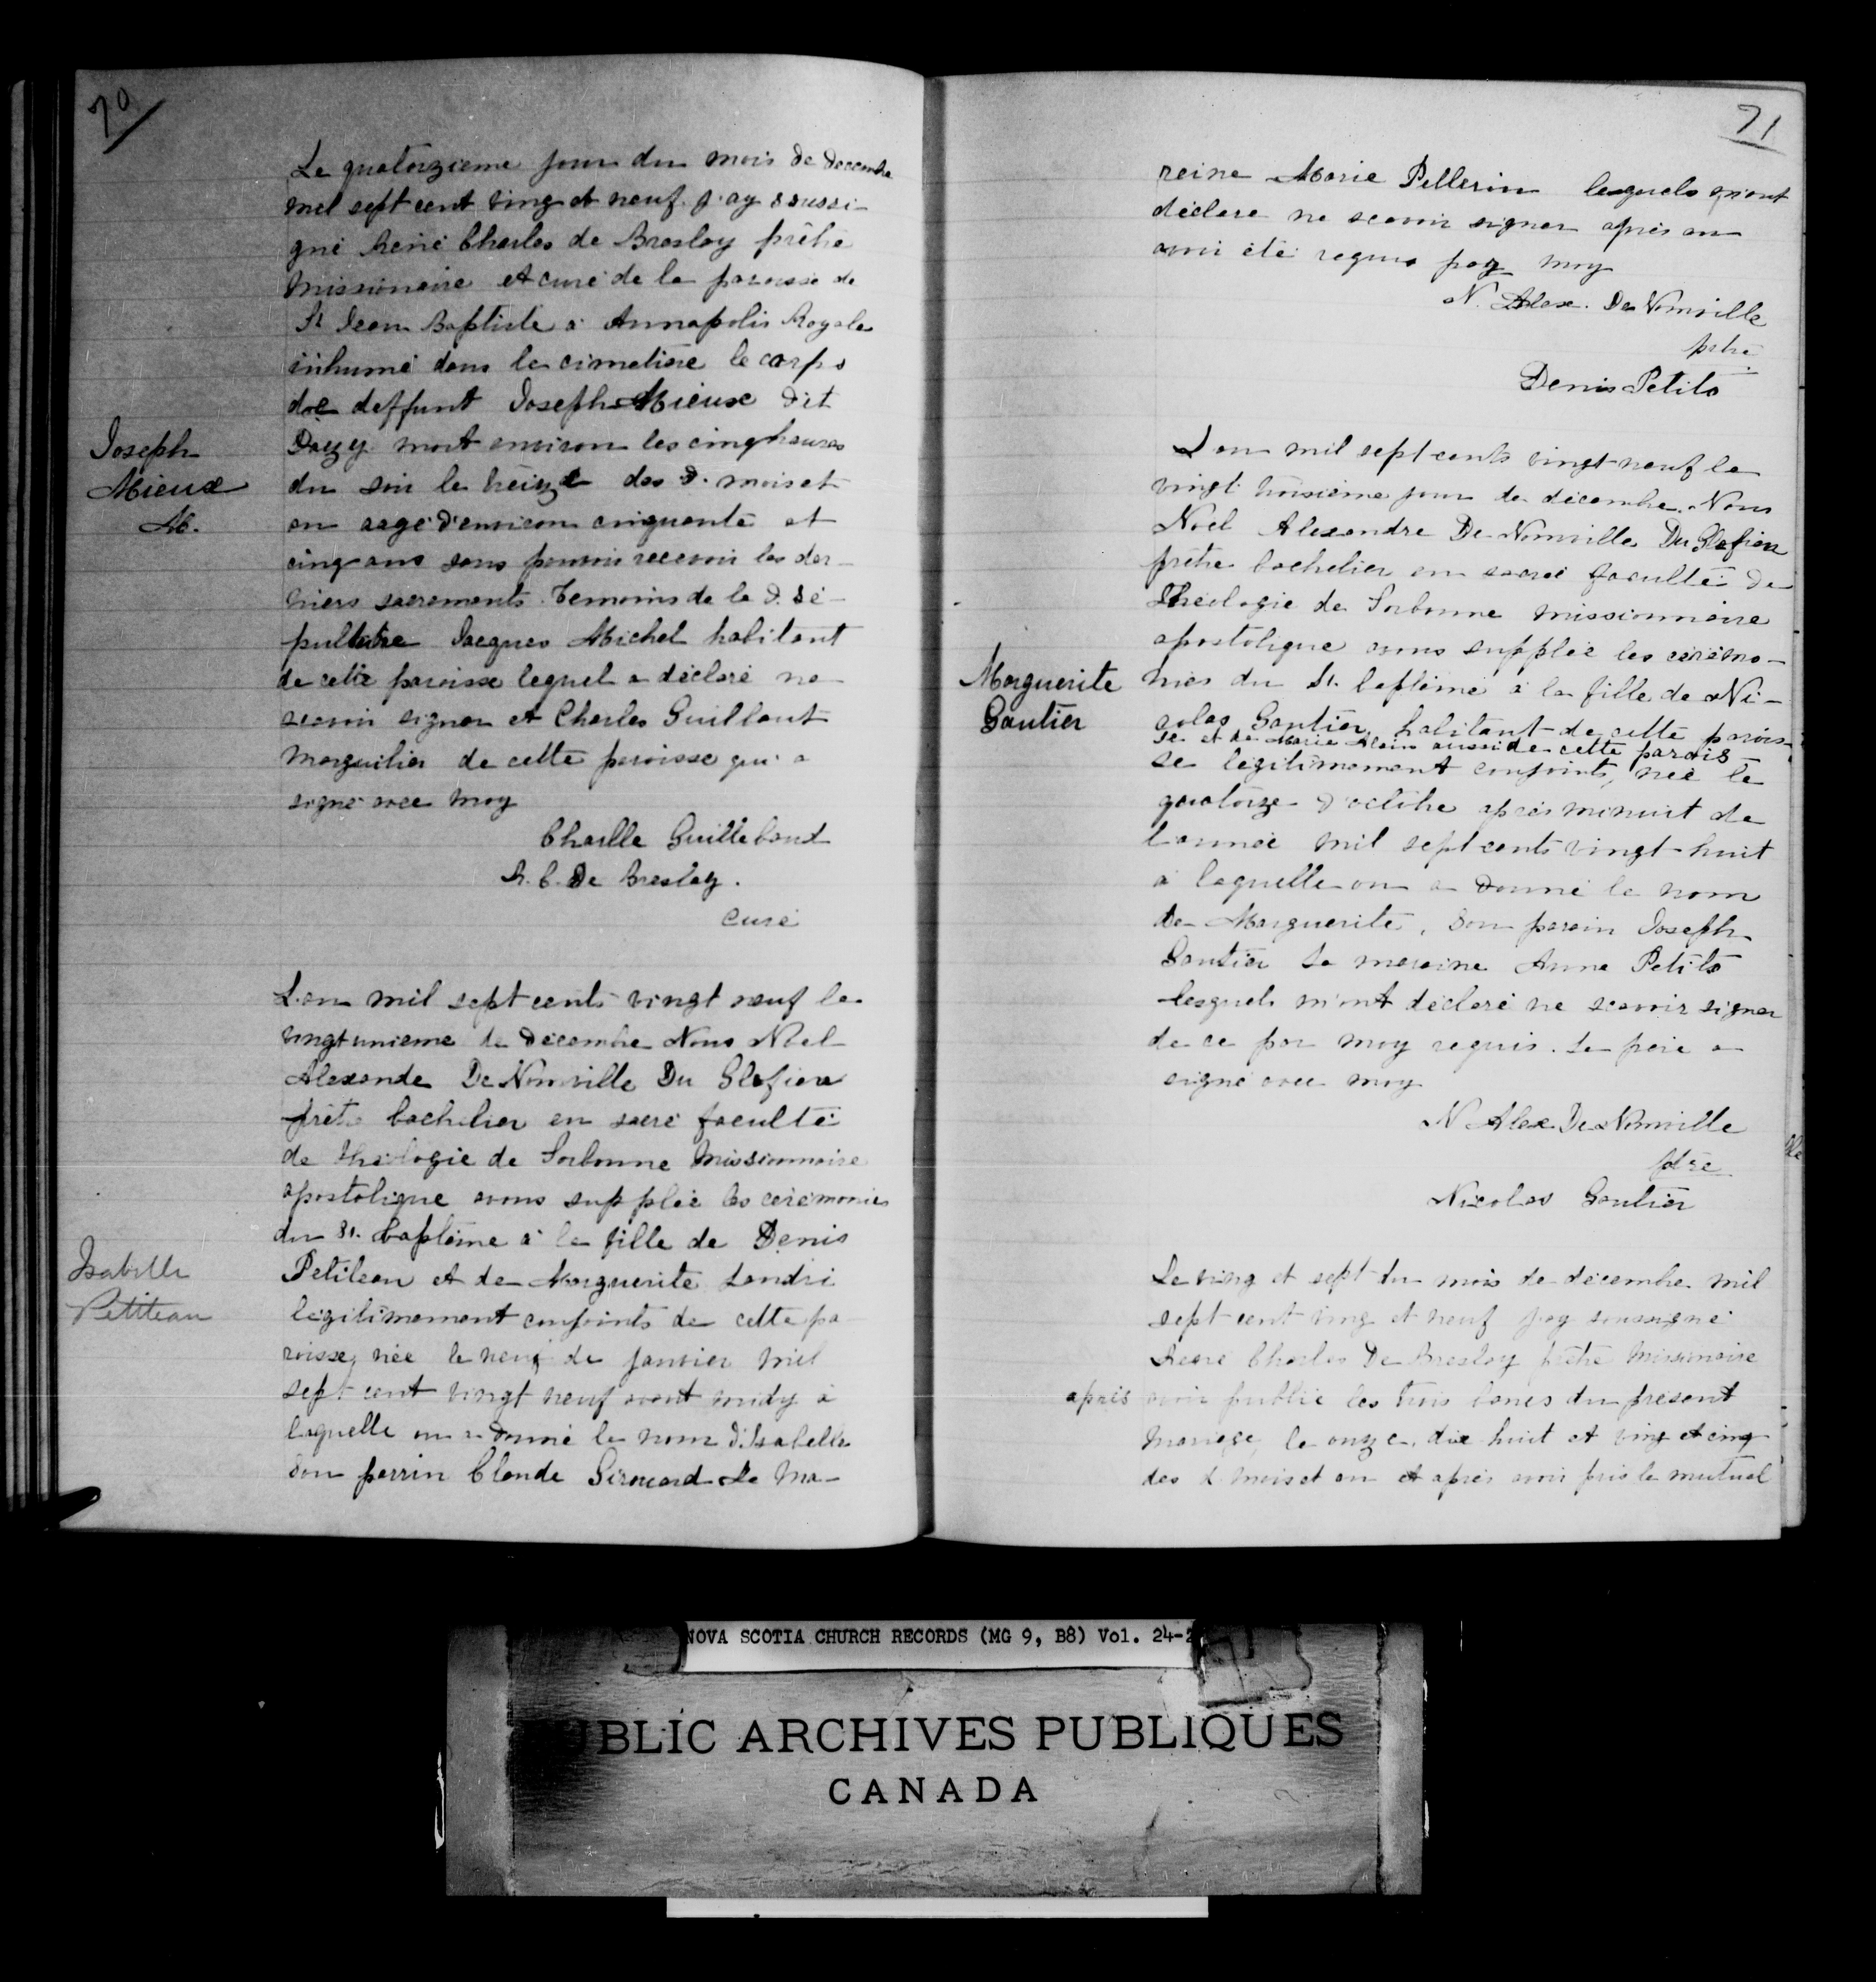 70
Le quatorzieme jour du mois de decembre
mil sept cent ving et neuf j'ay soussi-
gné René Charles de Breslay prêtre
missionaire et curé de la paroisse de
St Jean Baptiste à Annapolis Royale
inhumé dans le cimetiere le corps
de deffunt Joseph Mieux dit
Dazy mort environ les cinq heures
Joseph
Mieux
M.
du soir le treize des d. mois et
an aagé d'environ cinquante et
cinq ans sans pouvoir recevoir les der-
niers sacrements. Temoins de la d. sé-
pulture Jacques Michel habitant
de cette paroisse lequel a déclaré ne
scavoir signer et Charles Guillbaut
marguilier de cette paroisse qui a
signé avec moy
Charlle Guillebaud
R. C. De Breslay.
curé
L'an mil sept cents vingt neuf le
vingt unieme de décembre Nous Noel
Alexandre De Nonville Du Glefien
prêtre bachelier en sacré faculté
de théologie de Sorbonne Missionnaire
apostolique avons supplée les cérémonies
du St. baptême à la fille de Denis
Isabelle
Petiteau
Petiteau et de Marguerite Landri
légitimement conjoints de cette pa
roisse, née le neuf de janvier mil
sept cent vingt neuf avant midy à
laquelle on a donné le nom d'Isabelle
son parrin Claude Girouard sa ma-
71
reine Marie Pellerin lesquels m'ont
déclaré ne scavoir signer après en
avoir été requis par moy
N. Alex. De Nonville
ptre
Denis Petito
L'an mil sept cents vingt neuf le
vingt troisieme jour de décembre. Nous
Noel Alexandre De Nonville Du Glefien
prêtre bachelier en sacré faculté de
théologie de Sorbonne missionnaire
apostolique avons supplée les cérémo-
Marguerite
Gautier
nies du St. baptême à la fille de Ni-
colas Gautier habitant de cette parois-
se et de Marie Alain aussi de cette parois
se légitimement conjoints, née le
quatorze d'octobre après minuit de
l'année mil sept cents vingt-huit
à laquelle on a donné le nom
de Marguerite, son parain Joseph
Gautier sa maraine Anne Petito
lesquels m'ont déclaré ne scavoir signer
de ce par moy requis. Le père a
signé avec moy
N Alex. De Nonville
ptre
Nicolas Gautier
Le ving et sept du mois de décembre mil
sept cent ving et neuf j'ay soussigné
René Charles De Breslay prêtre Missionaire
après avoir publié les trois bancs du présent
mariage, le onze, dix huit et ving et cinq
des d. mois et an et après avoir pris le mutuel
NOVA SCOTIA CHURCH RECORDS (MG 9, B8) Vol. 24-2
PUBLIC ARCHIVES PUBLIQUES
CANADA